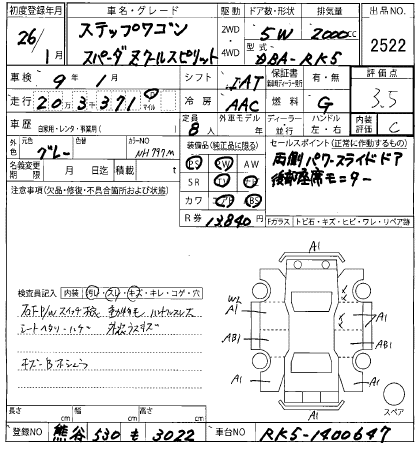 初度登録年月 車名・グレード 駆動 ドア数・形状 排気量 出品NO.
26/1月 ステップワゴン 2WD 5W 2000cc 2522
スパーダZクールスピリット ・4WD 型式 DBA-RK5
車検 9年1月 シフト IAT 保証書 有・無 評価点
走行 20万3千371 マイル 冷房 AAC 燃料 G 3.5
車歴 自家用・レンタ・事業用( ) 定員 8人 外車モデル 年 ディーラー 並行 ハンドル 左・右 内装評価 C
外色 元色 グレー 色替 カラーNO NH797M 装備品(純正品に限る) セールスポイント(正常に作動するもの)
PS PW AW 両側パワースライドドア
名義変更期限 月 日迄 積載 t SR TV ナビ 後部座席モニター
注意事項(欠品・修復・不具合箇所および状態) カワ エアB ABS
R券 13,840円 Fガラス トビ石・キズ・ヒビ・ワレ・リペア跡
A1
検査員記入 内装 汚レ・スレ・キズ・キレ・コゲ・穴
A1
A1
AB1
AB1
A1
A1
A1
スペア
長さ cm 幅 cm 高さ cm
登録NO 熊谷 530 も 3022 車台NO RK5-1400647